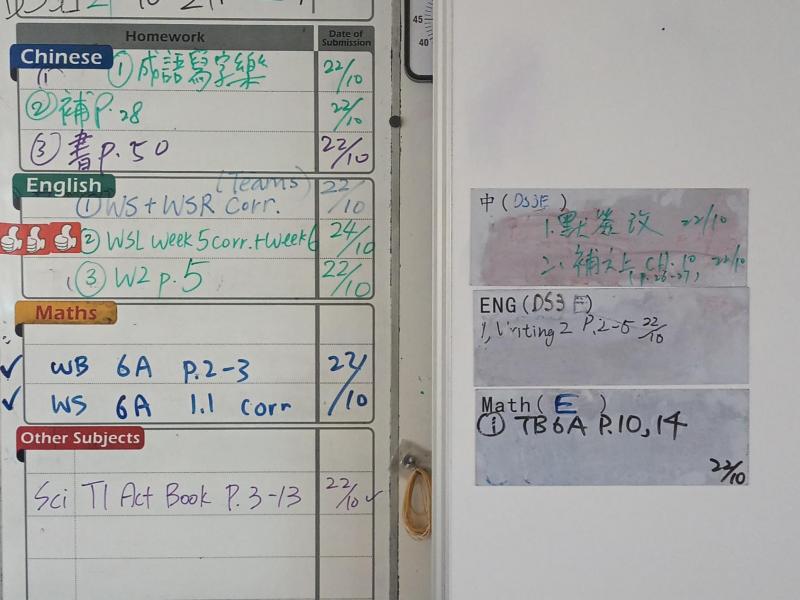 45
40
Homework
Date of Submission
Chinese
① 成語寫字樂 22/10
② 補P.28 22/10
③ 書p.50 22/10
English
(Teams)
① WS + WSR Corr. 22/10
② WSL week 5 corr.+week 6 24/10
③ W2 p.5 22/10
Maths
✓ WB 6A P.2-3 22/10
✓ WS 6A 1.1 Corr
Other Subjects
Sci T1 Act Book P.3-13 22/10 ✓
中(DS3E)
1. 默簽改 22/10
2. 補大上 CH.10 22/10
(p.26-27)
ENG(DS3E)
1, Writing 2 P.2-5 22/10
Math(E)
① TB6A P.10,14
22/10